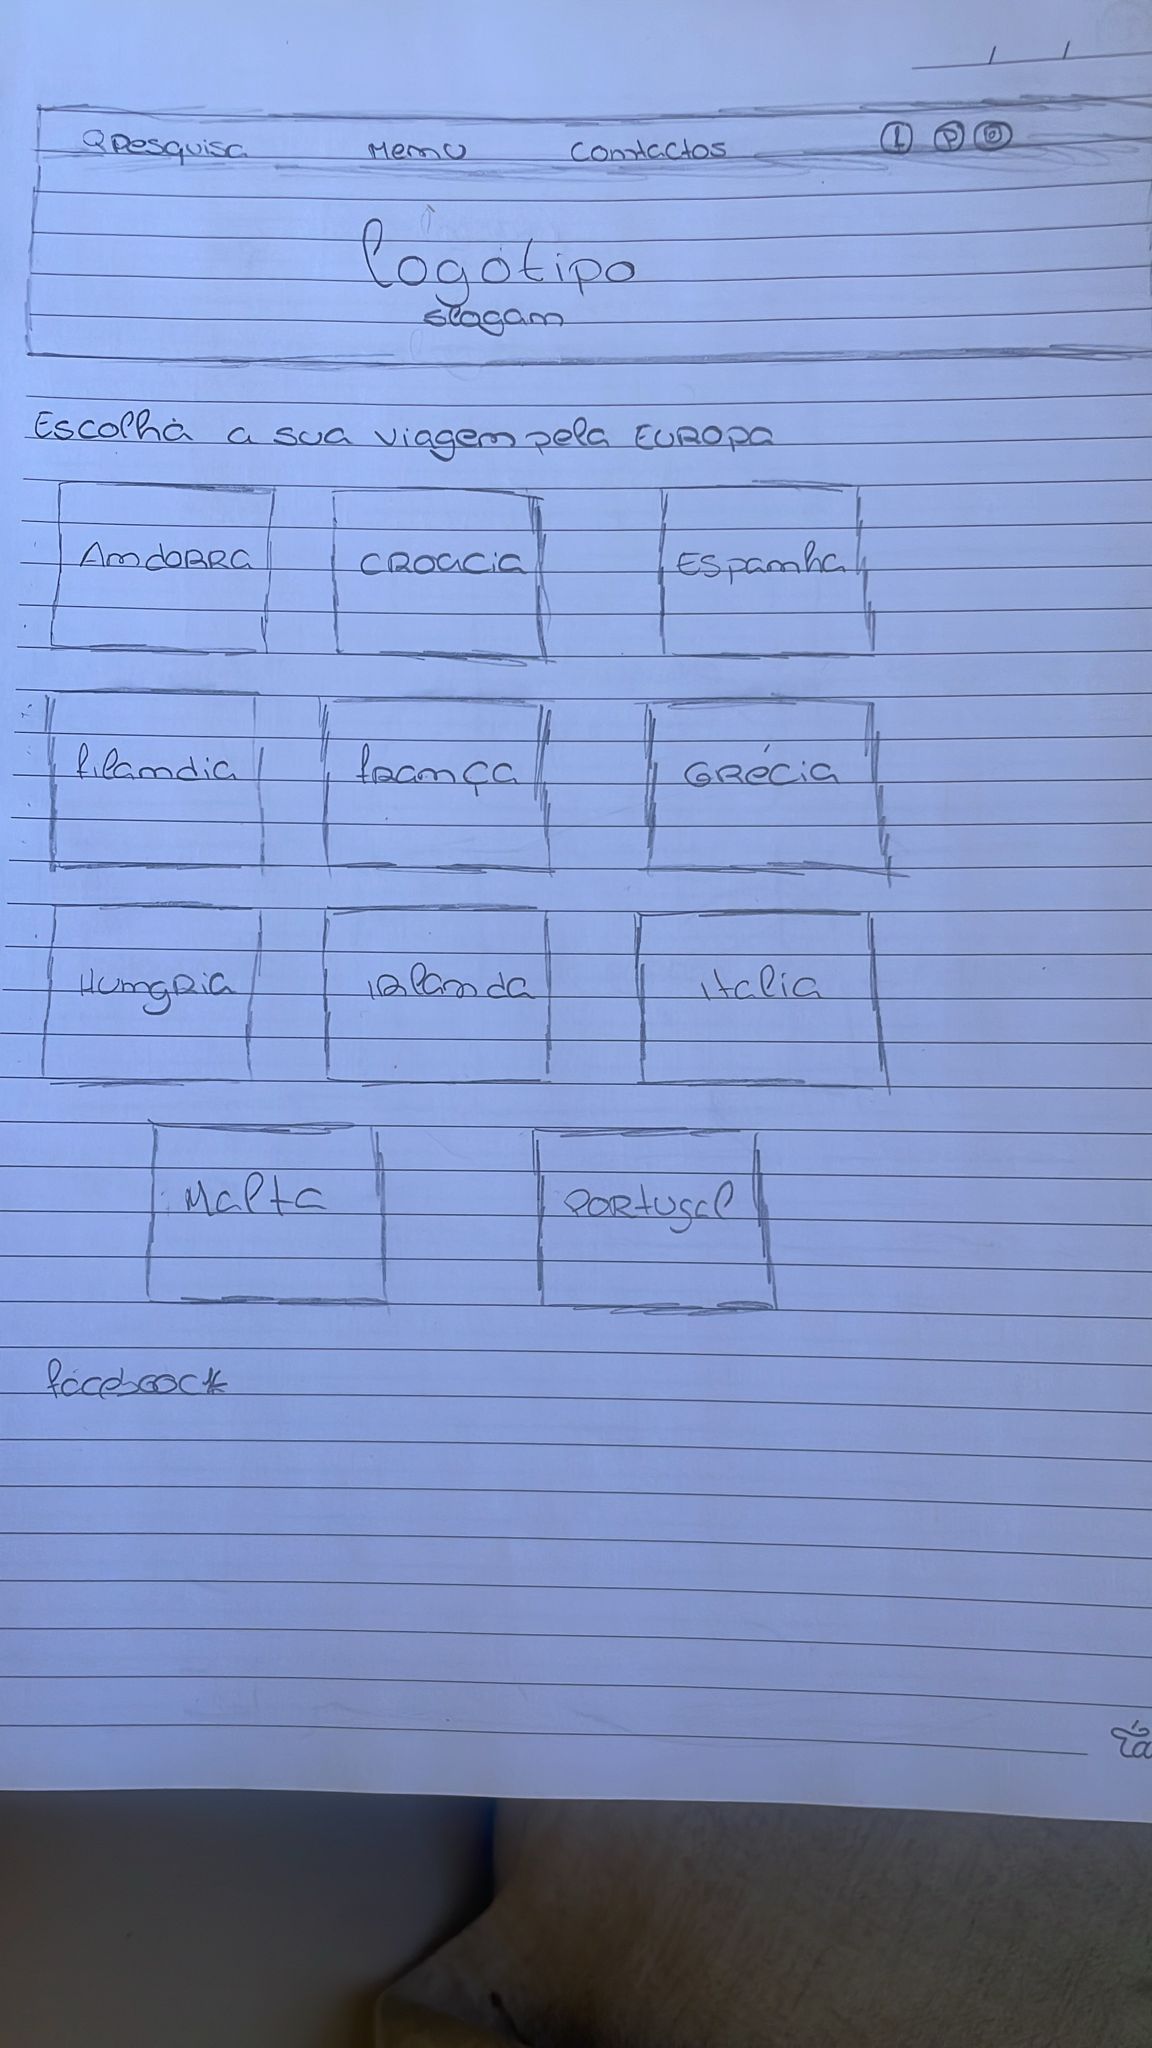 Pesquisa Menu Contactos
Logótipo
slogam
Escolha a sua viagem pela EUROPA
Andorra Croacia Espanha
filandia frança Grécia
Hungria irlanda italia
Malta Portugal
facebook